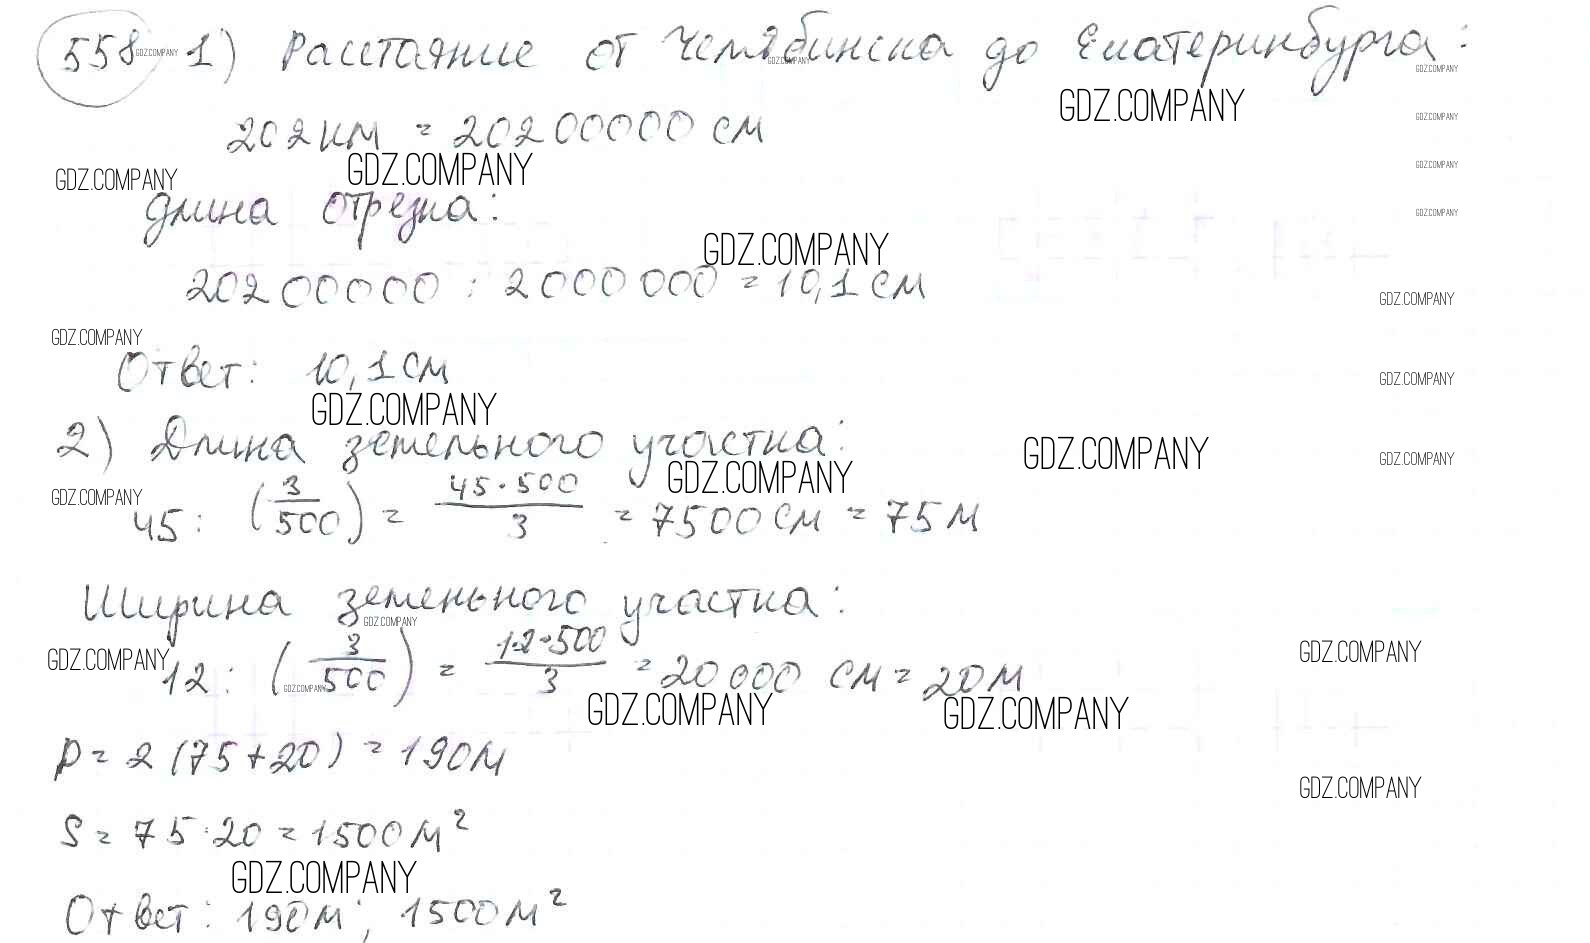 558 GDZ.COMPANY 1) Расстояние от Челябинска до Екатеринбурга:
GDZ.COMPANY GDZ.COMPANY
GDZ.COMPANY GDZ.COMPANY
202 км = 20200000 см
GDZ.COMPANY
GDZ.COMPANY GDZ.COMPANY
Длина отрезка:
GDZ.COMPANY
GDZ.COMPANY
20200000 : 2000000 = 10,1 см
GDZ.COMPANY
GDZ.COMPANY
Ответ: 10,1 см
GDZ.COMPANY
GDZ.COMPANY
2) Длина земельного участка:
GDZ.COMPANY GDZ.COMPANY
GDZ.COMPANY
GDZ.COMPANY
45 : (3/500) = 45·500/3 = 7500 см = 75 м
Ширина земельного участка:
GDZ.COMPANY
GDZ.COMPANY GDZ.COMPANY
12 : (3/500) = 12·500/3 = 20000 см = 20 м
GDZ.COMPANY
GDZ.COMPANY GDZ.COMPANY
P = 2 (75+20) = 190 м
GDZ.COMPANY
S = 75·20 = 1500 м²
GDZ.COMPANY
Ответ: 190 м; 1500 м²